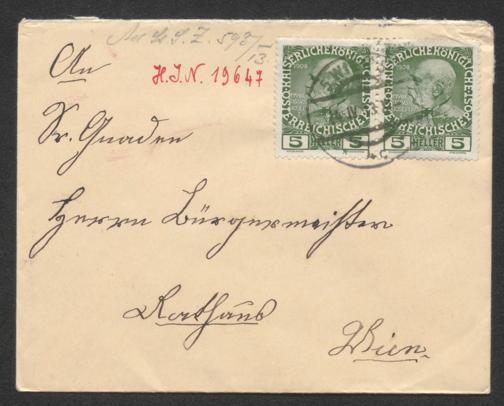 Z. 598/13
An
H.I.N. 19647
Sr. Gnaden
Herrn Bürgermeister
Rathaus
Wien.
KAISERLICHE KÖNIGLICHE
1908
ÖSTERREICHISCHE POST
5 HELLER 5
KAISERLICHE KÖNIGLICHE
1908
ÖSTERREICHISCHE POST
5 HELLER 5